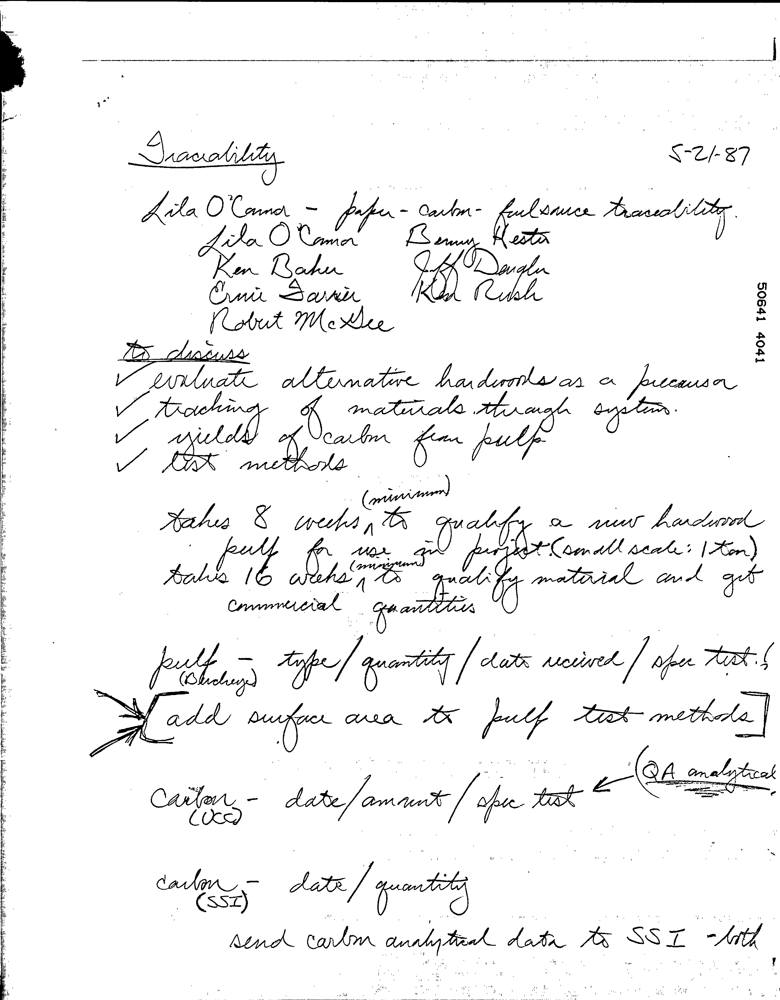 Traceability 5-21-87
Lila O'Connor - paper - carbon - fuel source traceability.
Lila O'Connor Benny Hester
Ken Baker Jeff Dangler
Ernie Farrier Ken Rush
Robert McGee
to discuss
✓ evaluate alternative hardwoods as a precursor
✓ tracking of materials through system.
✓ yields of carbon from pulp
✓ test methods
(minimum)
takes 8 weeks ^ to qualify a new hardwood
pulp for use in project. (small scale: 1 ton)
(minimum)
takes 16 weeks ^ to qualify material and get
commercial quantities
pulp - type / quantity / date received / spec test.
[add surface area to pulp test methods]
(QA analytical
Carbon - date / amount / spec test
(UCC)
carbon - date / quantity
(SSI)
send carbon analytical data to SSI - both
50641 4041